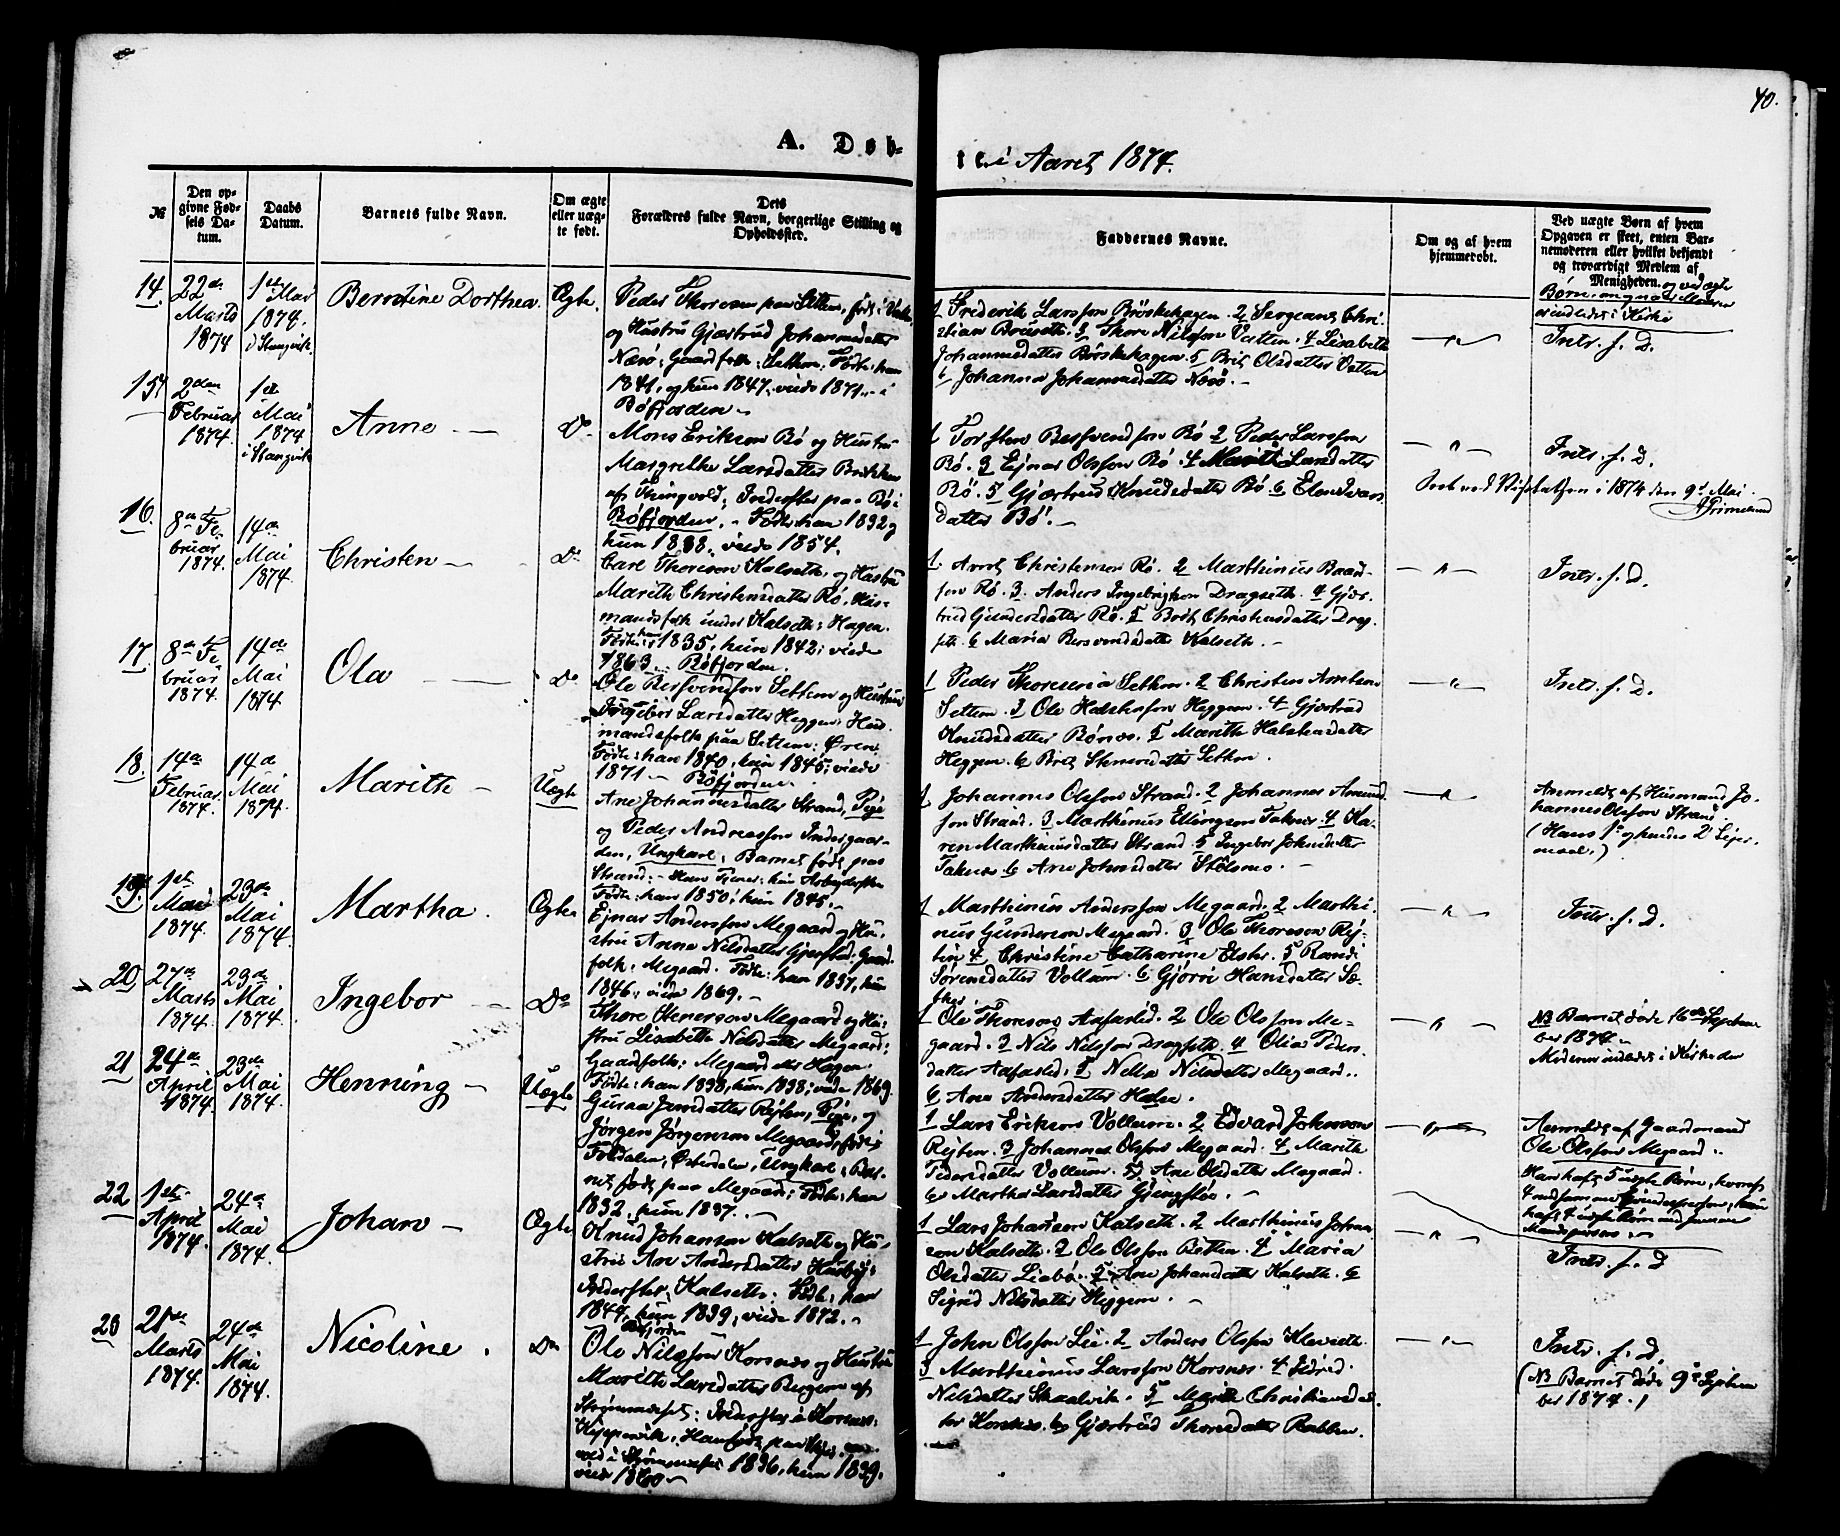 40.
A. Døb-
te i Aaret 1874.
№
Den op-
givne Fød-
sels Da-
tum.
Daabs
Datum.
Barnets fulde Navn.
Om ægte
eller uæg-
te født.
Dets
Forældres fulde Navn, borgerlige Stilling og
Opholdssted.
Faddernes Navne.
Om og af hvem
hjemmedøbt.
Ved uægte Børn af hvem
Opgaven er skeet, enten Bar-
nemoderen eller hvilket bekjendt
og troværdigt Medlem af
Menigheden.
14.
22de
Marts
1874
1ste Mai
1874.
i Stangvik.
Berntine Dorthea.
Ægte.
Peder Thoresen paa Settem, født i
og Hustru Gjærtrud Johannesdatter
Næsø, Gaardfolk: Settem. Født: han
1841, og hun 1847. viede 1871. i
Bøfjorden
1 Frederik Larsson Bøiskehagen. 2 Sergeant Chri-
stian Brusett. 3 Thore Nilsson Vatten. 4 Lisabeth
Johannesdatter Bøiskehagen. 5 Brit Olsdatter Vatten
6 Johanna Johannesdatter Næsø.
Intr. f. D.
15.
2den
Februar
1874.
1ste
Mai
1874
i Stangvik
Anne
Do
Mons Erikson Bø og Hustru
Margrethe Larsdatter Brikken
af Thingvold: Inderster paa Bø i
Bøfjorden. Født: han 1832 og
hun 1833. viede 1854.
1 Torsten Bersvendson Bø 2 Peder Larsson
Bø. 3 Ejnar Olsson Bø. 4 Marith Larsdatter
Bø. 5 Gjærtrud Knudsdatter Bø 6 Elen Ivars
datter Bø.
Intr. f. D.
Seet ved Visitatsen i 1874 den 9d Mai.
16.
8de Fe-
bruar
1874.
14de
Mai
1874.
Christen
Do
Carl Thoreson Kalseth og Hustru
Marith Christensdatter Bø. Hus-
mandsfolk under Kalseth: Hagen.
Født: han 1835, hun 1842: viede
1863. Bøfjorden.
1 Arnt Christensen Bø. 2 Marthinus Baard-
son Bø. 3. Anders Ingebrigtson Dragseth. 4 Gjær-
trud Gundersdatter Bø. 5 Brit Christensdatter Drag-
seth. 6 Maria Bersvendsdatter Kalseth.
Intr. f. D.
17.
8de Fe-
bruar
1874.
14de
Mai
1874
Ola
Do
Ole Bersvendson Settem og Hustru
Ingebor Larsdatter Heggem, Hus-
mandsfolk paa Settem: Øren.
Født: han 1840, hun 1845; viede
1871 Bøfjorden.
1 Peder Thoresen Settem. 2 Christen Arntson
Settem. 3 Ole Halstenson Heggem. 4 Gjærtrud
Knudsdatter Bønes. 5 Marith Halstensdatter
Heggem. 6 Brit Stenersdatter Settem.
Intr. f. D.
18.
14de
Februar
1874.
14de
Mai
1874.
Marith
Uægte
Ane Johannesdatter Strand, Pige
og Peder Andreasson Indergaar-
den, Ungkarl; Barnet født paa
Strand. Han Tjener; hun Arbeiderske
Født: han 1850; hun 1845.
1 Johannes Olsson Strand. 2 Johannes Amund-
son Strand. 3 Marthinus Ellingson Taknæs. 4 Ka-
ren Marthinusdatter Strand 5 Ingebor Johnsdatter
Taknæs 6 Ane Johnsdatter Stølsmo.
Anmeldt af Husmand Jo-
hannes Olsson Strand.
(Hans 1ste og hendes 2d Leier-
maal.)
19.
1ste
Mai
1874.
23de
Mai
1874
Martha.
Ægte
Ejnar Andersson Megaard og Hu-
stru Anne Nilsdatter Gjersted: Gaard-
folk: Megaard. Født: han 1837, hun
1846; viede 1869.
1 Marthinus Andersson Megaard. 2 Marthi-
nus Gunderson Megaard. 3 Ole Thoreson Rej-
ten 4 Christine Catharine Elster. 5 Randi
Sørensdatter Vollum. 6 Gjøro Hansdatter Sæ-
ther.
Intr. f. D.
20
27de
Marts
1874.
23de
Mai
1874.
Ingebor
Do
Thore Stenerson Megaard og Hu-
stru Lisabeth Nilsdatter Megaard:
Gaardfolk: Megaard Hagen.
Født: han 1838, hun 1838; viede 1869.
1 Ole Thoreson Aafarlid. 2 Ole Olsson Me-
gaard. 3 Nils Nilsson Dragseth. 4 Olia Peders-
datter Aafarlid. 5 Nella Nilsdatter Megaard.
6 Ane Andersdatter Holm.
NB Barnet døde 16de Septem-
ber 1874
Moderen indledet i Kirke der
21
24de
April
1874.
23de
Mai
1874.
Henning
Uægte
Guraa Jonsdatter Rejten, Pige, og
Jørgen Jørgenson Megaard, født i
Foldalen, Østerdalen, Ungkarl; Bar-
net født paa Megaard; Født: han
1832, hun 1837.
1 Lars Erikson Vollum. 2 Edvard Johnson
Rejten. 3 Johannes Olsson Megaard. 4 Marith
Pedersdatter Vollum. 5 Ane Olsdatter Megaard.
6 Martha Larsdatter Gjengstøe.
Anmeldt af Gaardmand
Ole Olsson Megaard.
Han haft 5 uægte Børn, hvoraf
4 med samme Qvindesperson; hun
haft 4 uægte Børn med samme
Mandsperson.
22
1ste
April
1874.
24de
Mai
1874.
Johan
Ægte
Knud Johanson Kalseth og Hu-
stru Ane Andersdatter Husby:
Inderster: Kalseth. Født: han
1847, hun 1839; viede 1872.
Bøfjorden
1 Lars Johanson Kalseth. 2 Marthinus Johan-
son Kalseth. 3 Ole Olsson Betten. 4 Maria
Olsdatter Liabø. 5 Ane Johansdatter Kalseth. 6
Sigrid Nilsdatter Heggem.
Intr. f. D
23
21de
Marts
1874.
24de
Mai
1874.
Nicoline.
Do
Ole Nilsson Korsnæs og Hustru
Marith Larsdatter Bergem af
Strømsneset: Inderster i Korsnæs:
1836, hun 1839.
viede 1860
1 John Olsson Lie. 2 Anders Olsson Kleveth.
3 Marthinus Larsson Korsnæs. 4 Idrid
Nilsdatter Skaalvik. 5 Marit Christiansdat-
ter Korsnæs. 6 Gjærtrud Thoresdatter Rabben.
Intr. f. D.
(NB Barnet døde 9de Septem
ber 1874.)